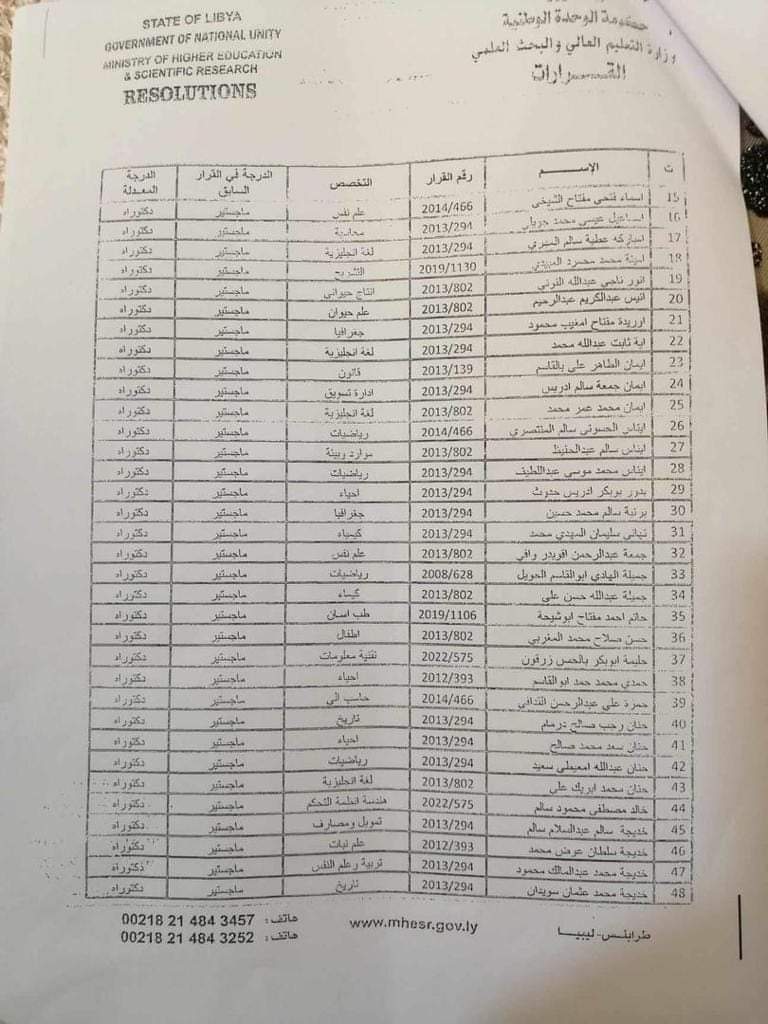 STATE OF LIBYA
GOVERNMENT OF NATIONAL UNITY
MINISTRY OF HIGHER EDUCATION
& SCIENTIFIC RESEARCH
RESOLUTIONS
حكومة الوحدة الوطنية
وزارة التعليم العالي والبحث العلمي
القرارات
ت الإسم رقم القرار التخصص الدرجة في القرار السابق الدرجة المعدلة
15 اسماء فتحي مفتاح الشيخي 2014/466 علم نفس ماجستير دكتوراه
16 اسماعيل عيسى محمد 2013/294 محاسبة ماجستير دكتوراه
17 امباركه عطية سالم 2013/294 لغة انجليزية ماجستير دكتوراه
18 امينة محمد 2019/1130 التشريح ماجستير دكتوراه
19 انور ناجي عبدالله 2013/802 انتاج حيواني ماجستير دكتوراه
20 انيس عبدالكريم عبدالرحيم 2013/802 علم حيوان ماجستير دكتوراه
21 اوريدة مفتاح امغيب محمود 2013/294 جغرافيا ماجستير دكتوراه
22 اية ثابت عبدالله محمد 2013/294 لغة انجليزية ماجستير دكتوراه
23 ايمان الطاهر علي بالقاسم 2013/139 قانون ماجستير دكتوراه
24 ايمان جمعة سالم ادريس 2013/294 ادارة تسويق ماجستير دكتوراه
25 ايمان محمد عمر محمد 2013/802 لغة انجليزية ماجستير دكتوراه
26 ايناس الحسوني سالم المنتصري 2014/466 رياضيات ماجستير دكتوراه
27 ايناس سالم عبدالحفيظ 2013/802 موارد وبيئة ماجستير دكتوراه
28 ايناس محمد موسى عبداللطيف 2013/294 رياضيات ماجستير دكتوراه
29 بدور بوبكر ادريس حدوث 2013/294 احياء ماجستير دكتوراه
30 برنية سالم محمد حسين 2013/294 جغرافيا ماجستير دكتوراه
31 تهاني سليمان المهدي محمد 2013/294 كيمياء ماجستير دكتوراه
32 جمعة عبدالرحمن اقويدر وافي 2013/802 علم نفس ماجستير دكتوراه
33 جميلة الهادي ابوالقاسم الحويل 2008/628 رياضيات ماجستير دكتوراه
34 جميلة عبدالله حسن علي 2013/802 كيمياء ماجستير دكتوراه
35 حاتم احمد مفتاح ابوشيحة 2019/1106 طب اسنان ماجستير دكتوراه
36 حسن صلاح محمد المغربي 2013/802 اطفال ماجستير دكتوراه
37 حليمة ابوبكر بالحسن زرقون 2022/575 تقنية معلومات ماجستير دكتوراه
38 حمدي محمد حمد ابوالقاسم 2012/393 احياء ماجستير دكتوراه
39 حمزة علي عبدالرحمن القذافي 2014/466 حاسب الي ماجستير دكتوراه
40 حنان رجب صالح درمام 2013/294 تاريخ ماجستير دكتوراه
41 حنان سعد محمد صالح 2013/294 احياء ماجستير دكتوراه
42 حنان عبدالله امعيطي سعيد 2013/294 رياضيات ماجستير دكتوراه
43 حنان محمد ابريك علي 2013/802 لغة انجليزية ماجستير دكتوراه
44 خالد مصطفى محمود سالم 2022/575 هندسة انظمة التحكم ماجستير دكتوراه
45 خديجة سالم عبدالسلام سالم 2013/294 تمويل ومصارف ماجستير دكتوراه
46 خديجة سلطان عوض محمد 2012/393 علم نبات ماجستير دكتوراه
47 خديجة محمد عبدالمالك محمود 2013/294 تربية وعلم النفس ماجستير دكتوراه
48 خديجة محمد عثمان سويدان 2013/294 تاريخ ماجستير دكتوراه
طرابلس-ليبيا www.mhesr.gov.ly هاتف: 00218 21 484 3457
هاتف: 00218 21 484 3252